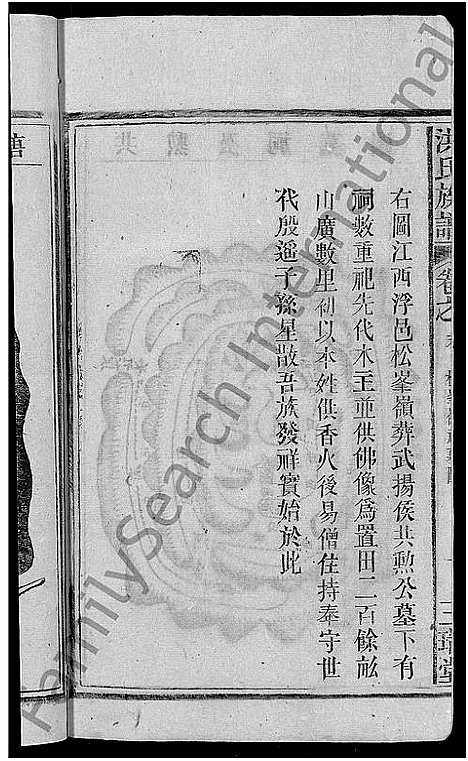 洪氏族譜
卷之
三瑞堂
右圖江西浮邑松峯嶺葬武揚侯共勲公墓下有
祠數重祀先代木主並供佛像爲置田二百餘畝
山廣數里初以本姓供香火後易僧住持奉守世
代殷遥子孫星散吾族發祥實始於此
FamilySearch International